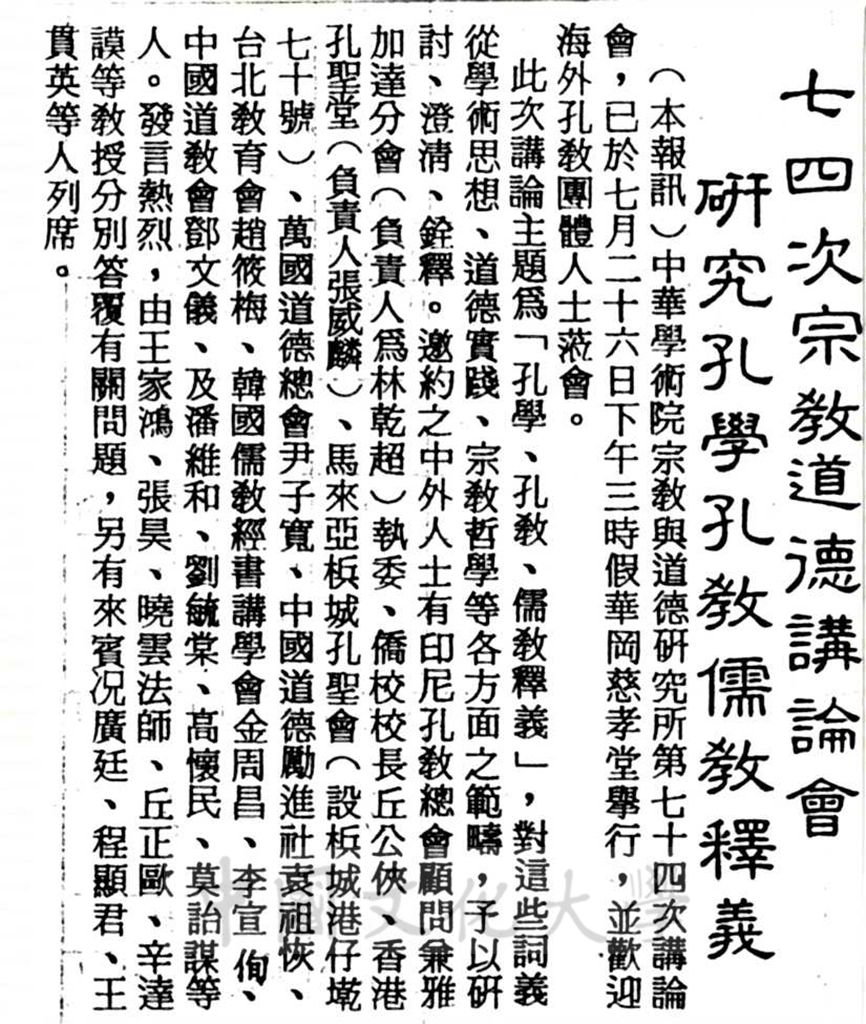 七四次宗教道德講論會
研究孔學孔教儒教釋義
（本報訊）中華學術院宗教與道德研究所第七十四次講論
會，已於七月二十六日下午三時假華岡慈孝堂舉行，並歡迎
海外孔教團體人士蒞會。
此次講論主題爲「孔學、孔教、儒教釋義」，對這些詞義
從學術思想、道德實踐、宗教哲學等各方面之範疇，予以研
討、澄清、銓釋。邀約之中外人士有印尼孔教總會顧問兼雅
加達分會（負責人爲林乾超）執委、僑校校長丘公俠、香港
孔聖堂（負責人張威麟）、馬來亞檳城孔聖會（設檳城港仔墘
七十號）、萬國道德總會尹子寬、中國道德勵進社袁祖恢、
台北教育會趙筱梅、韓國儒教經書講學會金周昌、李宣侚、
中國道教會鄧文儀、及潘維和、劉毓棠、高懷民、莫詒謀等
人。發言熱烈，由王家鴻、張昊、曉雲法師、丘正歐、辛達
謨等教授分別答覆有關問題，另有來賓况廣廷、程顯君、王
貫英等人列席。
中國文化大學